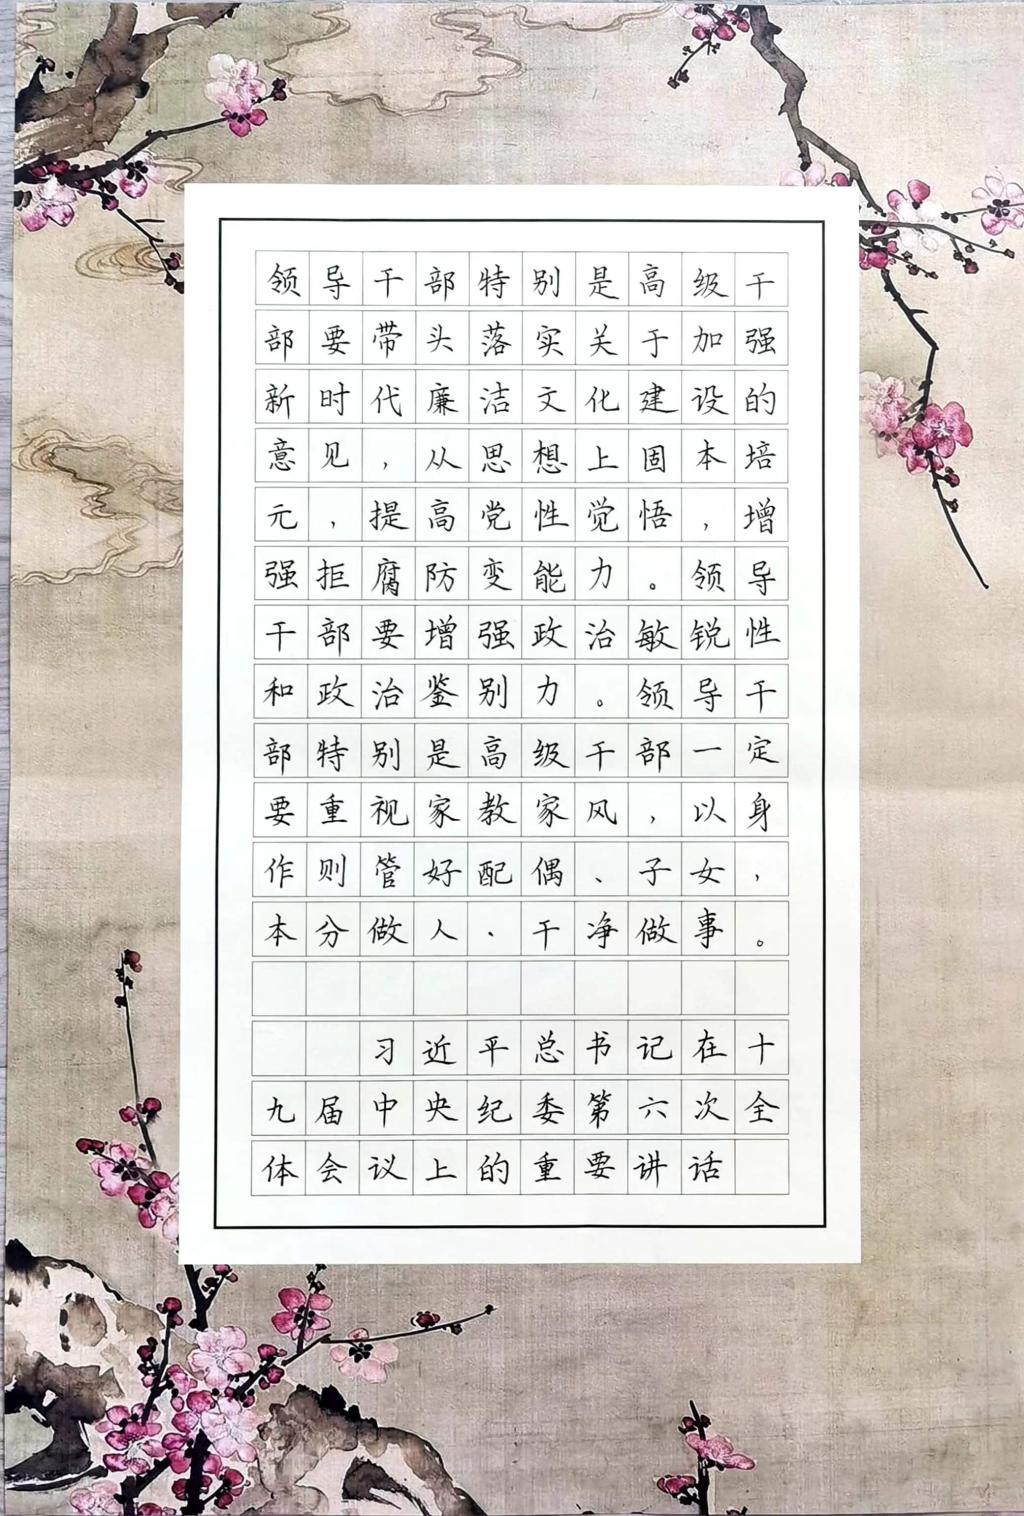 领导干部特别是高级干
部要带头落实关于加强
新时代廉洁文化建设的
意见，从思想上固本培
元，提高党性觉悟，增
强拒腐防变能力。领导
干部要增强政治敏锐性
和政治鉴别力。领导干
部特别是高级干部一定
要重视家教家风，以身
作则管好配偶、子女，
本分做人、干净做事。
习近平总书记在十
九届中央纪委第六次全
体会议上的重要讲话